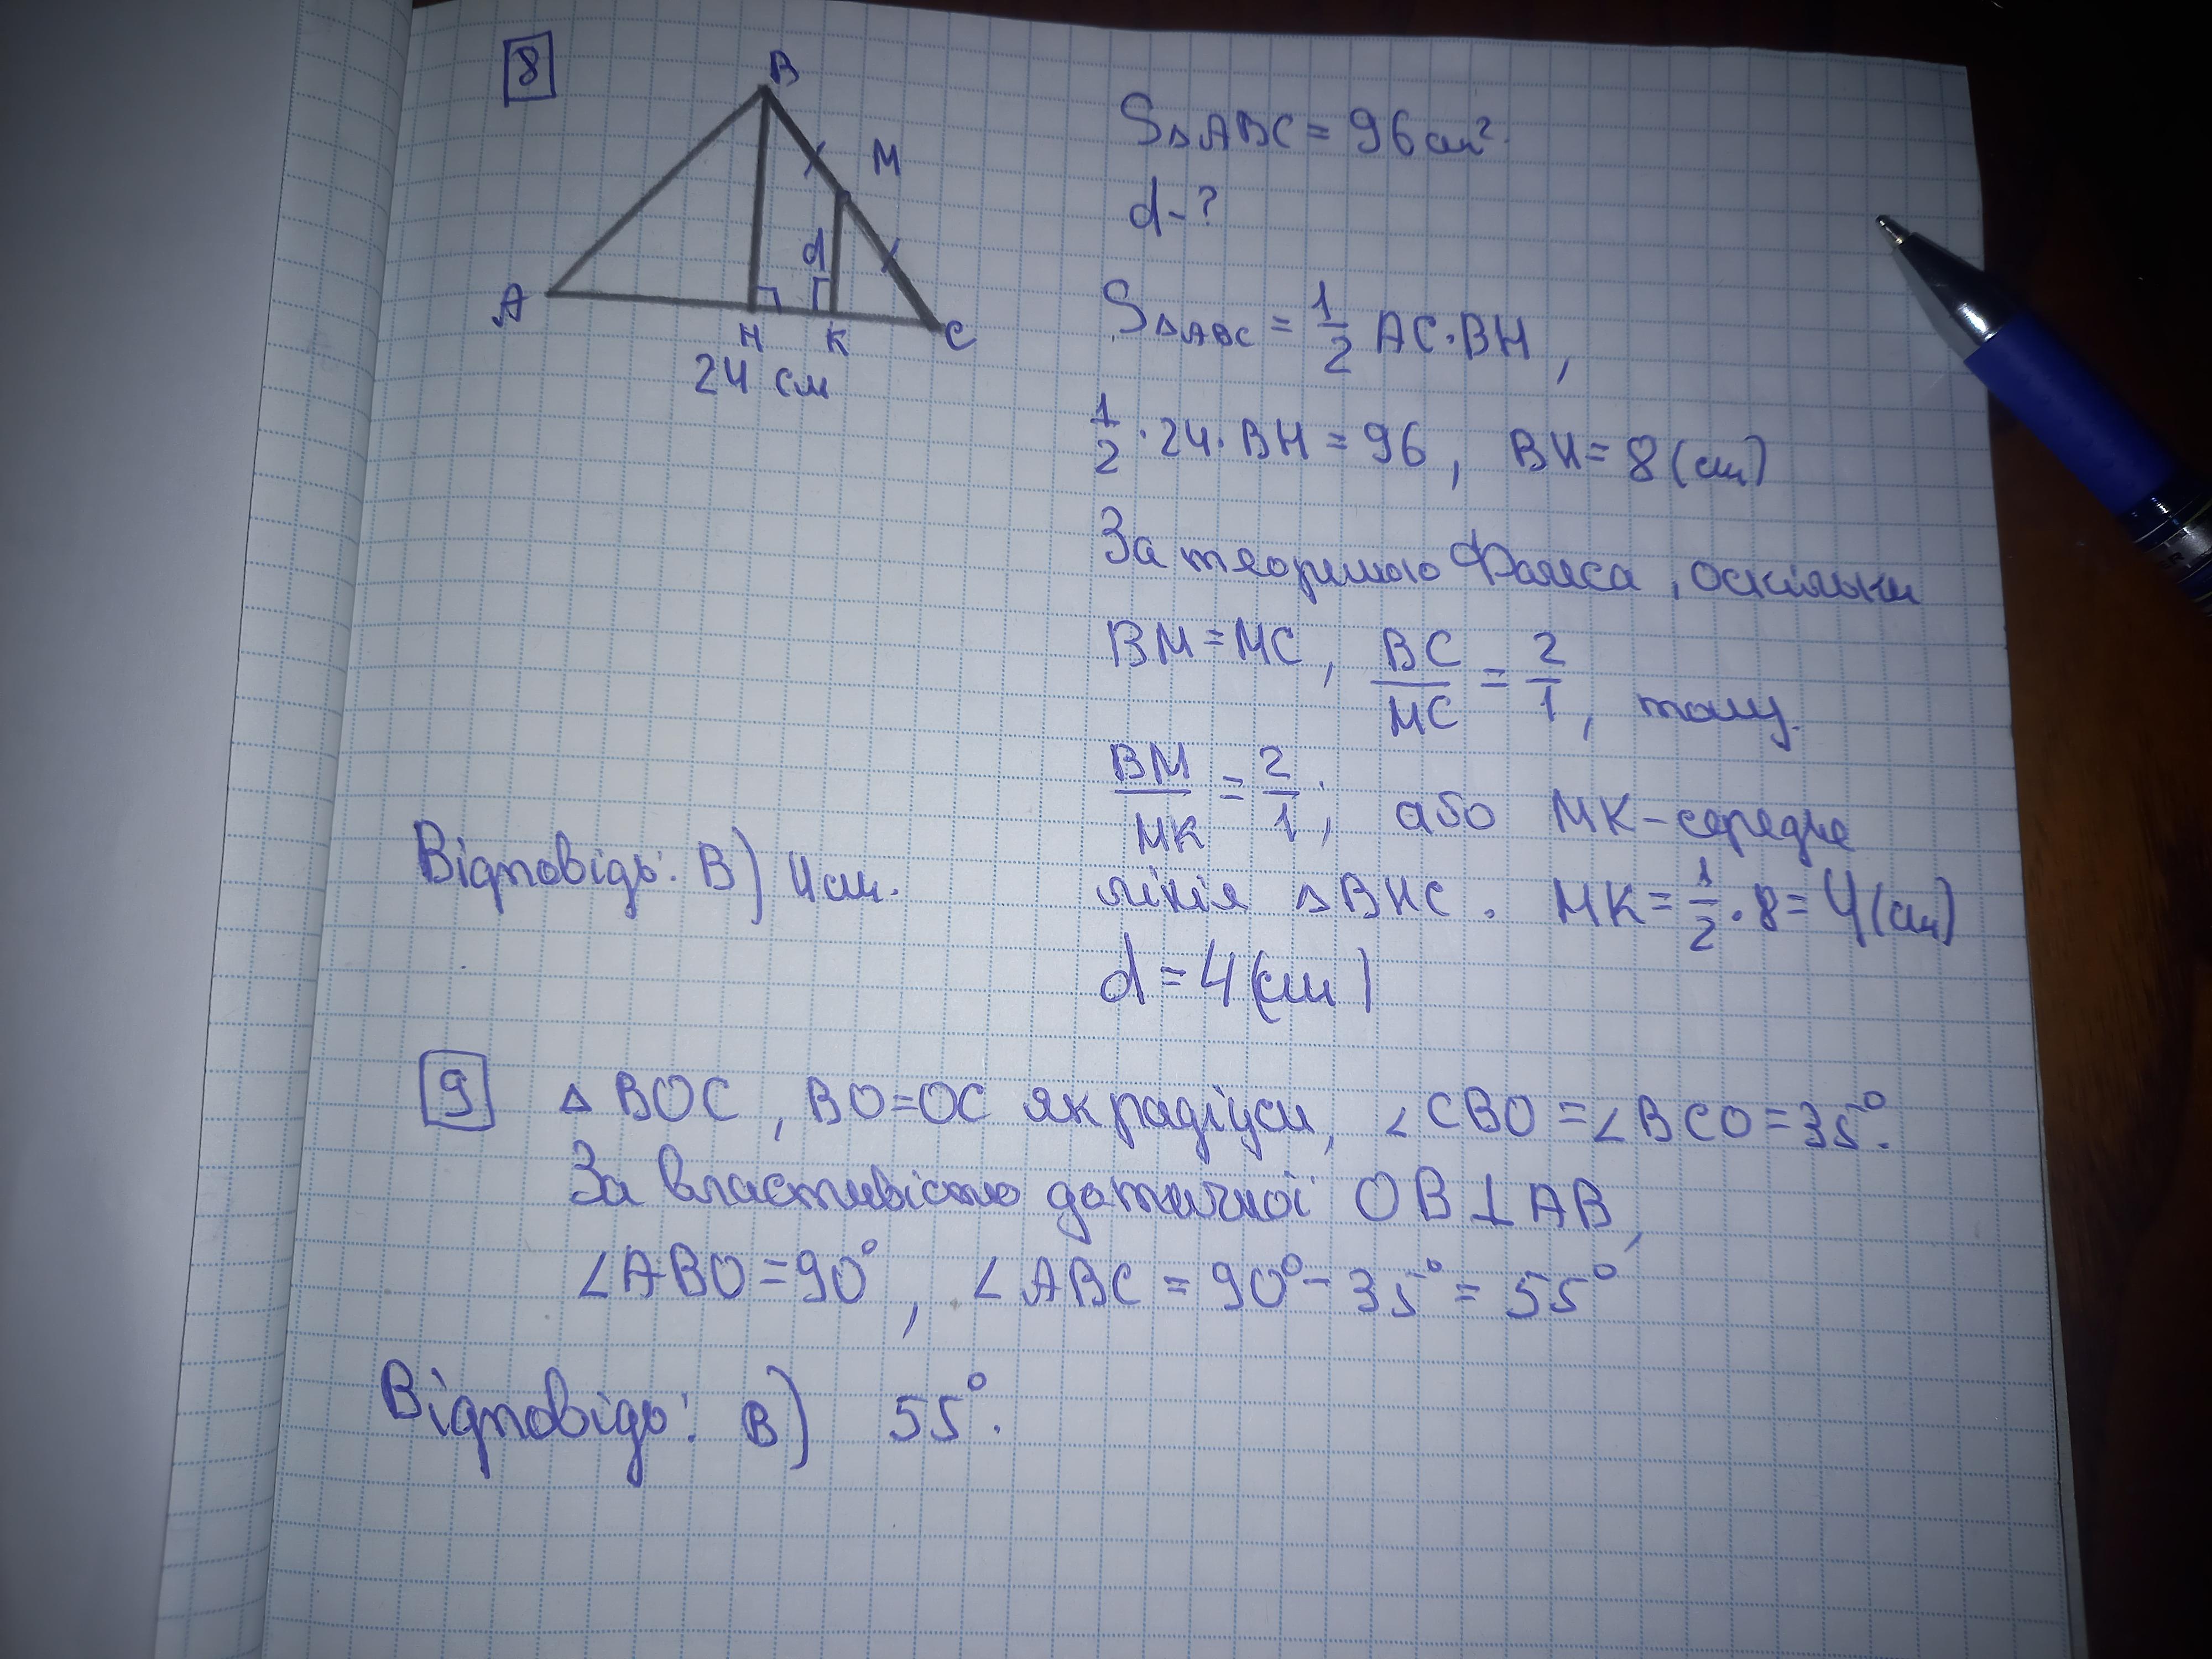 8
B
M
d
A
H
K
C
24 см
S△ABC = 96 см².
d - ?
S△ABC = 1/2 AC · BH,
1/2 · 24 · BH = 96, BH = 8 (см)
За теоремою Фалеса, оскільки
BM = MC, BC/MC = 2/1, тому
BM/MK = 2/1, або MK - середнє
лінія △BHC. MK = 1/2 · 8 = 4 (см)
d = 4 (см)
Відповідь: В) 4 см.
9 △ BOC, BO = OC як радіуси, ∠CBO = ∠BCO = 35°.
За властивістю дотичної OB ⊥ AB,
∠ABO = 90°, ∠ABC = 90° - 35° = 55°
Відповідь: в) 55°.